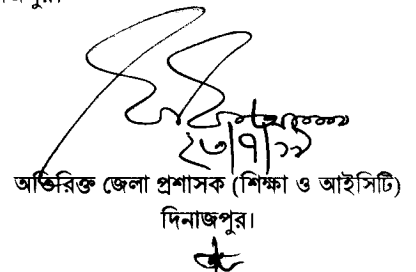 জপুর।
২৩|৭|১৯
অতিরিক্ত জেলা প্রশাসক (শিক্ষা ও আইসিটি)
দিনাজপুর।